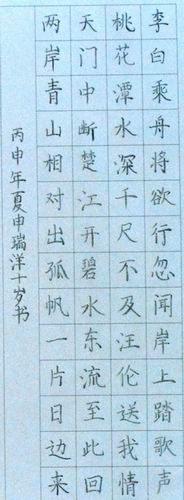 李白乘舟将欲行忽闻岸上踏歌声
桃花潭水深千尺不及汪伦送我情
天门中断楚江开碧水东流至此回
两岸青山相对出孤帆一片日边来
丙申年夏申瑞洋十岁书